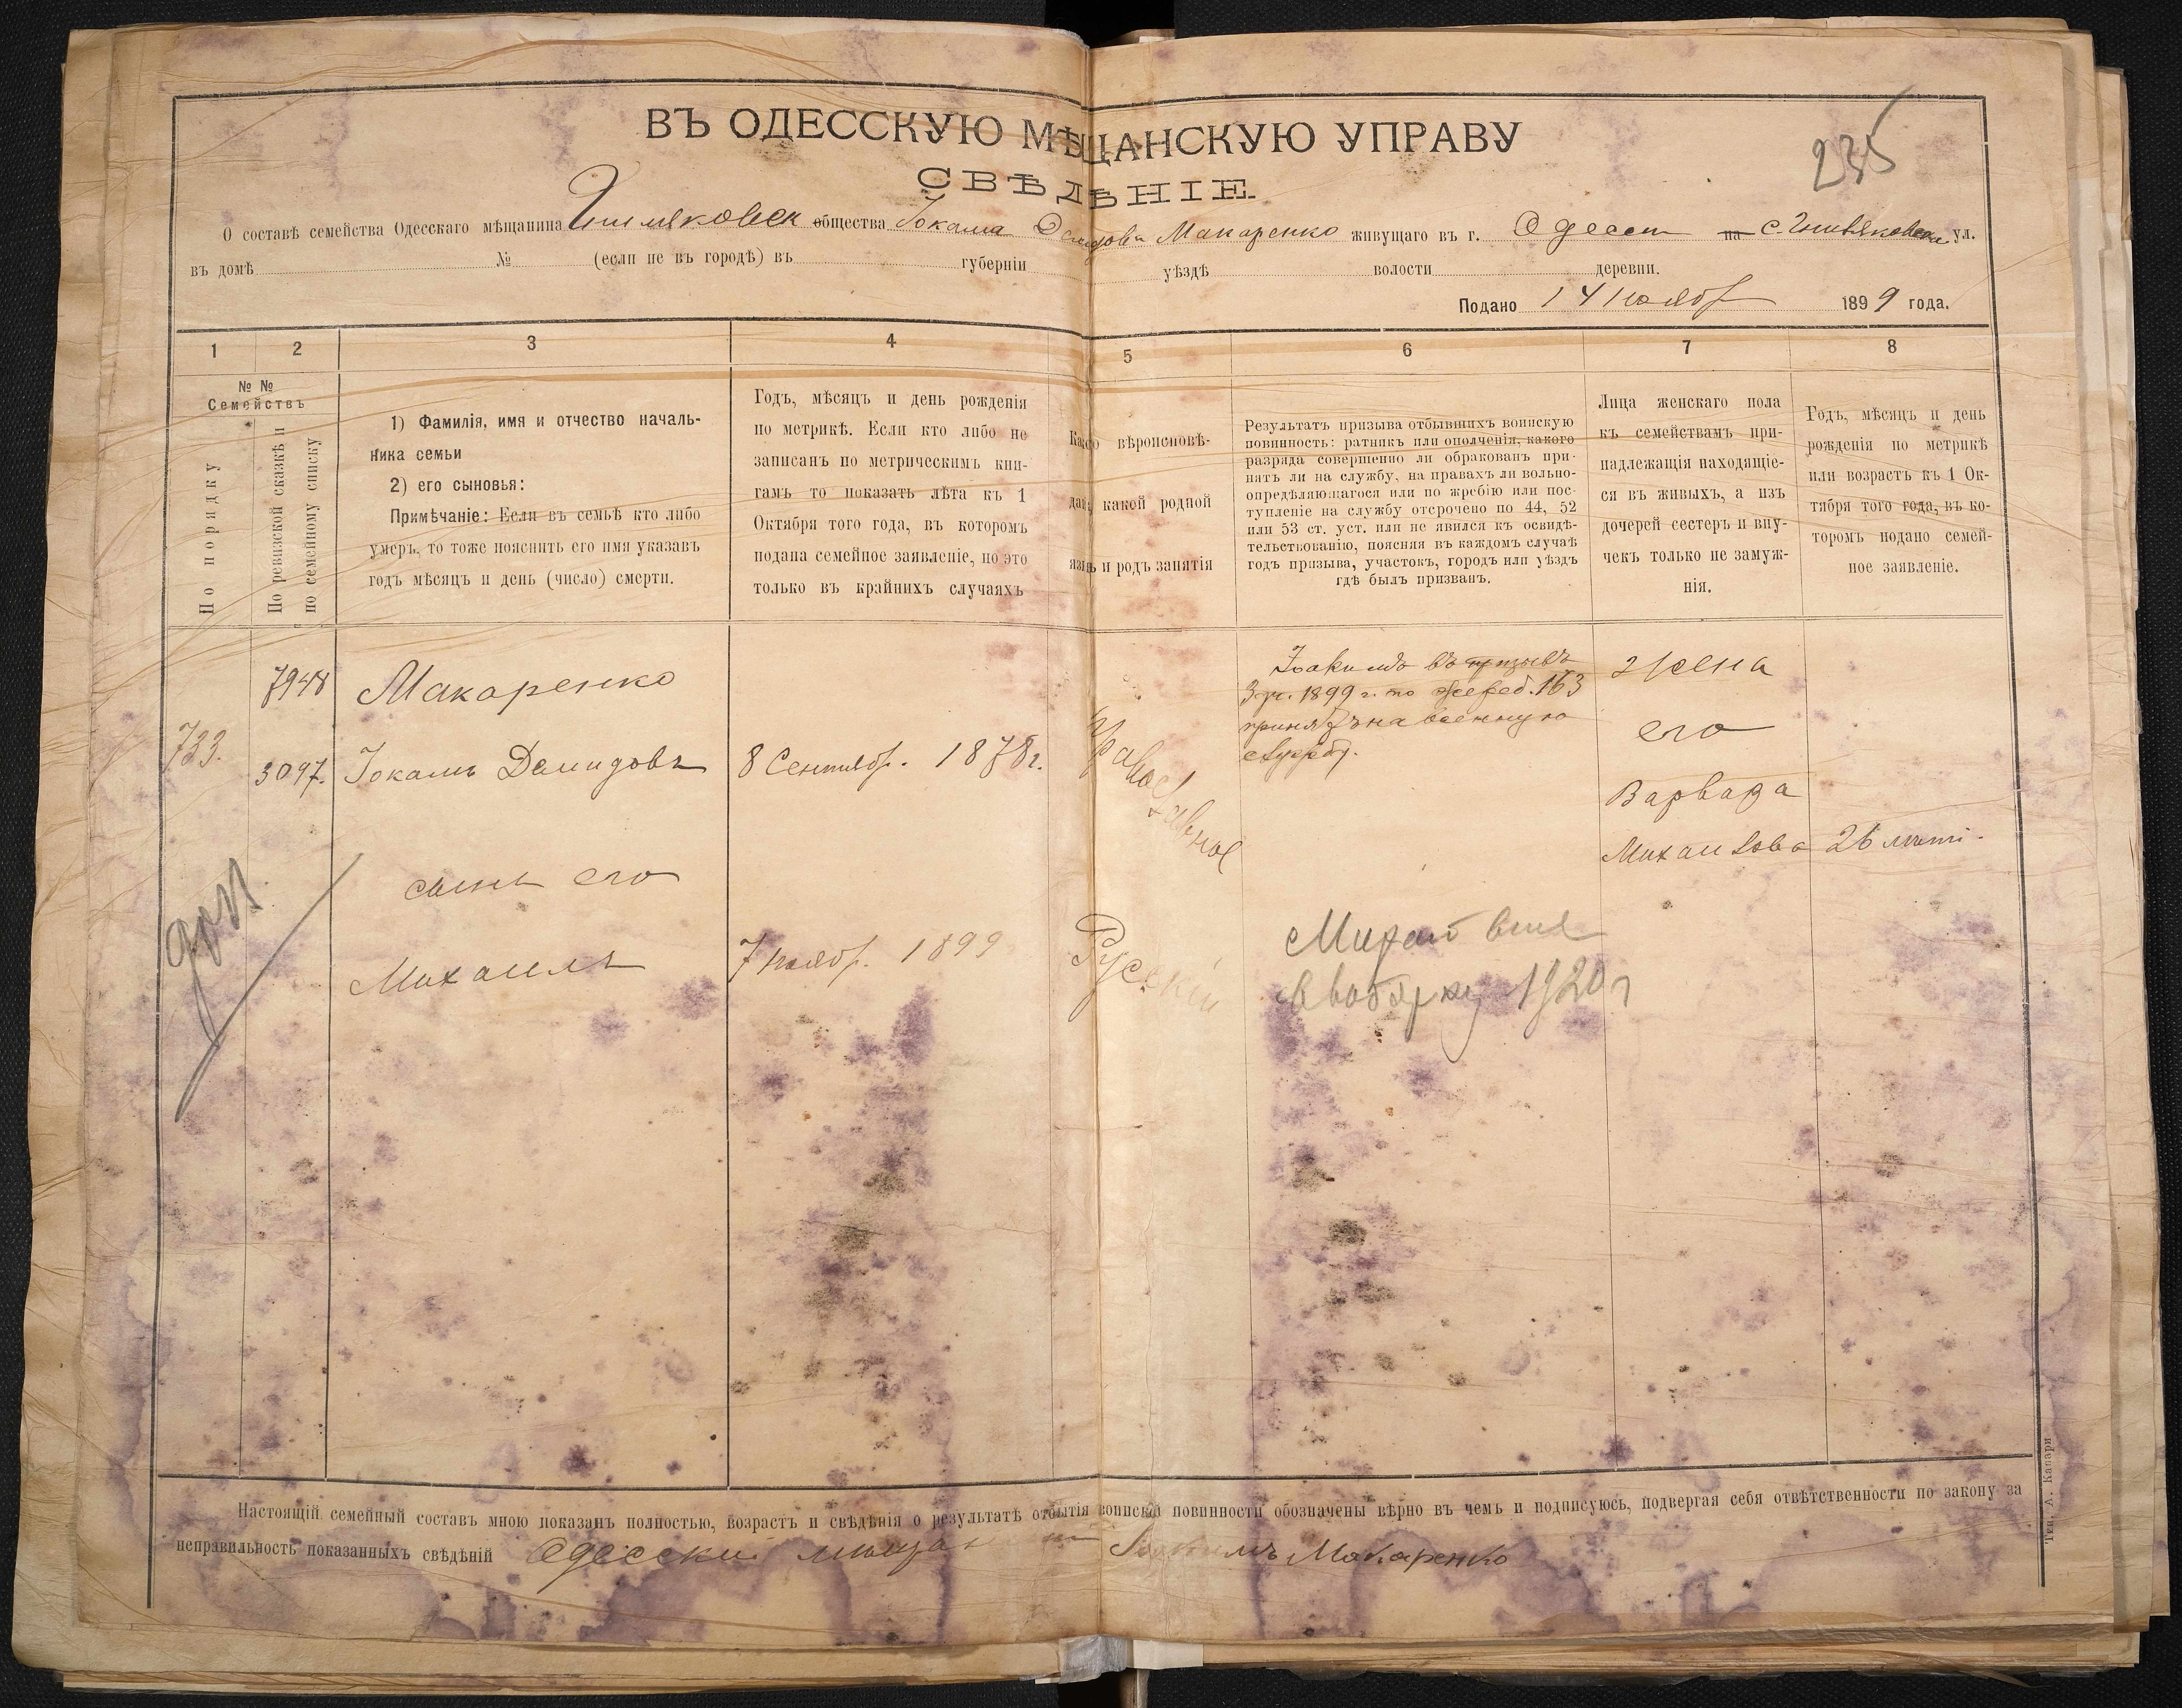 235
ВЪ ОДЕССКУЮ МѢЩАНСКУЮ УПРАВУ
СВѢДѢНІЕ.
О составѣ семейства Одесскаго мѣщанина общества Іокама Демидова Макаренко живущаго въ г. Одесст на с. ул.
въ домѣ № (если не въ городѣ) въ губерніи уѣздѣ волости деревни.
Подано 14 ноябр 1899 года.
1 2 3 4 5 6 7 8
№ №
Семействъ
По порядку
По ревизской сказкѣ и
по семейному списку
1) Фамилія, имя и отчество началь-
ника семьи
2) его сыновья:
Примѣчаніе: Если въ семьѣ кто либо
умеръ, то тоже пояснить его имя указавъ
годъ мѣсяцъ и день (число) смерти.
Годъ, мѣсяцъ и день рожденія
по метрикѣ. Если кто либо не
записанъ по метрическимъ кни-
гамъ то показать лѣта къ 1
Октября того года, въ которомъ
подана семейное заявленіе, но это
только въ крайнихъ случаяхъ
Какого вѣроисповѣ-
данія, какой родной
языкъ и родъ занятія
Результатъ призыва отбывшихъ воинскую
повинность: ратникъ или ополченія, какого
разряда совершенно ли обракованъ при-
нятъ ли на службу, на правахъ ли вольно-
опредѣляющагося или по жребію или пос-
тупленіе на службу отсрочено по 44, 52
или 53 ст. уст. или не явился къ освидѣ-
тельствованію, поясняя въ каждомъ случаѣ
годъ призыва, участокъ, городъ или уѣздъ
гдѣ былъ призванъ.
Лица женскаго пола
къ семействамъ при-
надлежащія находящіе-
ся въ живыхъ, а изъ
дочерей сестеръ и вну-
чекъ только не замуж-
нія.
Годъ, мѣсяцъ и день
рожденія по метрикѣ
или возрастъ къ 1 Ок-
тября того года, въ ко-
торомъ подано семей-
ное заявленіе.
733.
7948
3097.
Макаренко
Іокамъ Демидовъ
8 Сентябр. 1878 г.
сынъ его
Михаилъ
7 ноябр. 1899
Православное
Русскій
Іоакимъ въ призывъ
3 уч. 1899 г. по жереб. 163
принятъ на военную
службу.
Жена
его
Варвара
Михаилова 26 лѣтъ.
1920 г
доп
Настоящій семейный составъ мною показанъ полностью, возрастъ и свѣдѣнія о результатѣ отбытія воинской повинности обозначены вѣрно въ чемъ и подписуюсь, подвергая себя отвѣтственности по закону за
неправильность показанныхъ свѣдѣній Одесскій мѣщанинъ Іоакимъ Макаренко
Тип. А. Капари